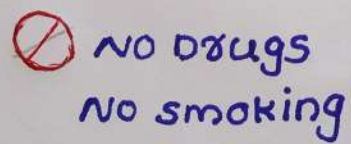 NO DRUGS
NO smoking